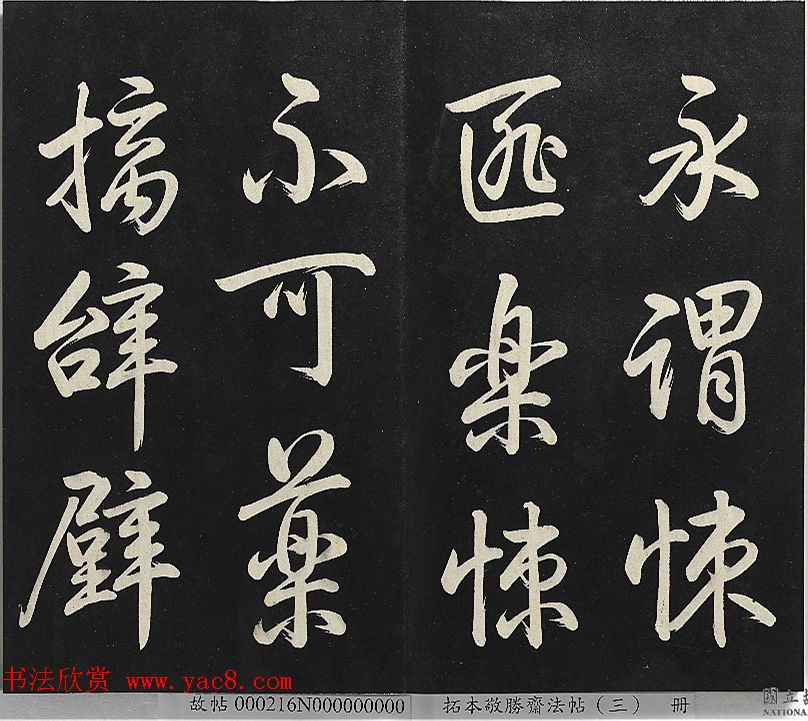 永謂悚
匪樂悚
不可藥
摛辝
书法欣赏 www.yac8.com
故帖000216N000000000 拓本敬勝齋法帖（三） 册
國立
NATIONA